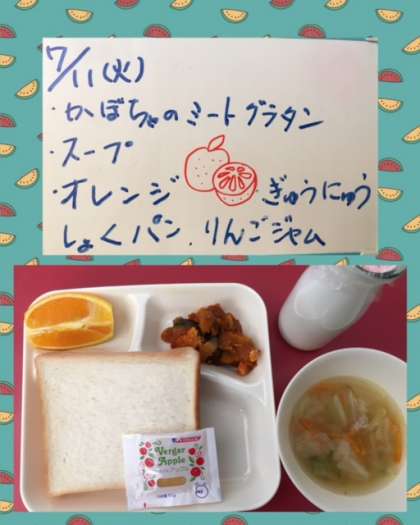 7/11(火)
・かぼちゃのミートグラタン
・スープ
・オレンジ ぎゅうにゅう
しょくパン.りんごジャム
Verger
Apple